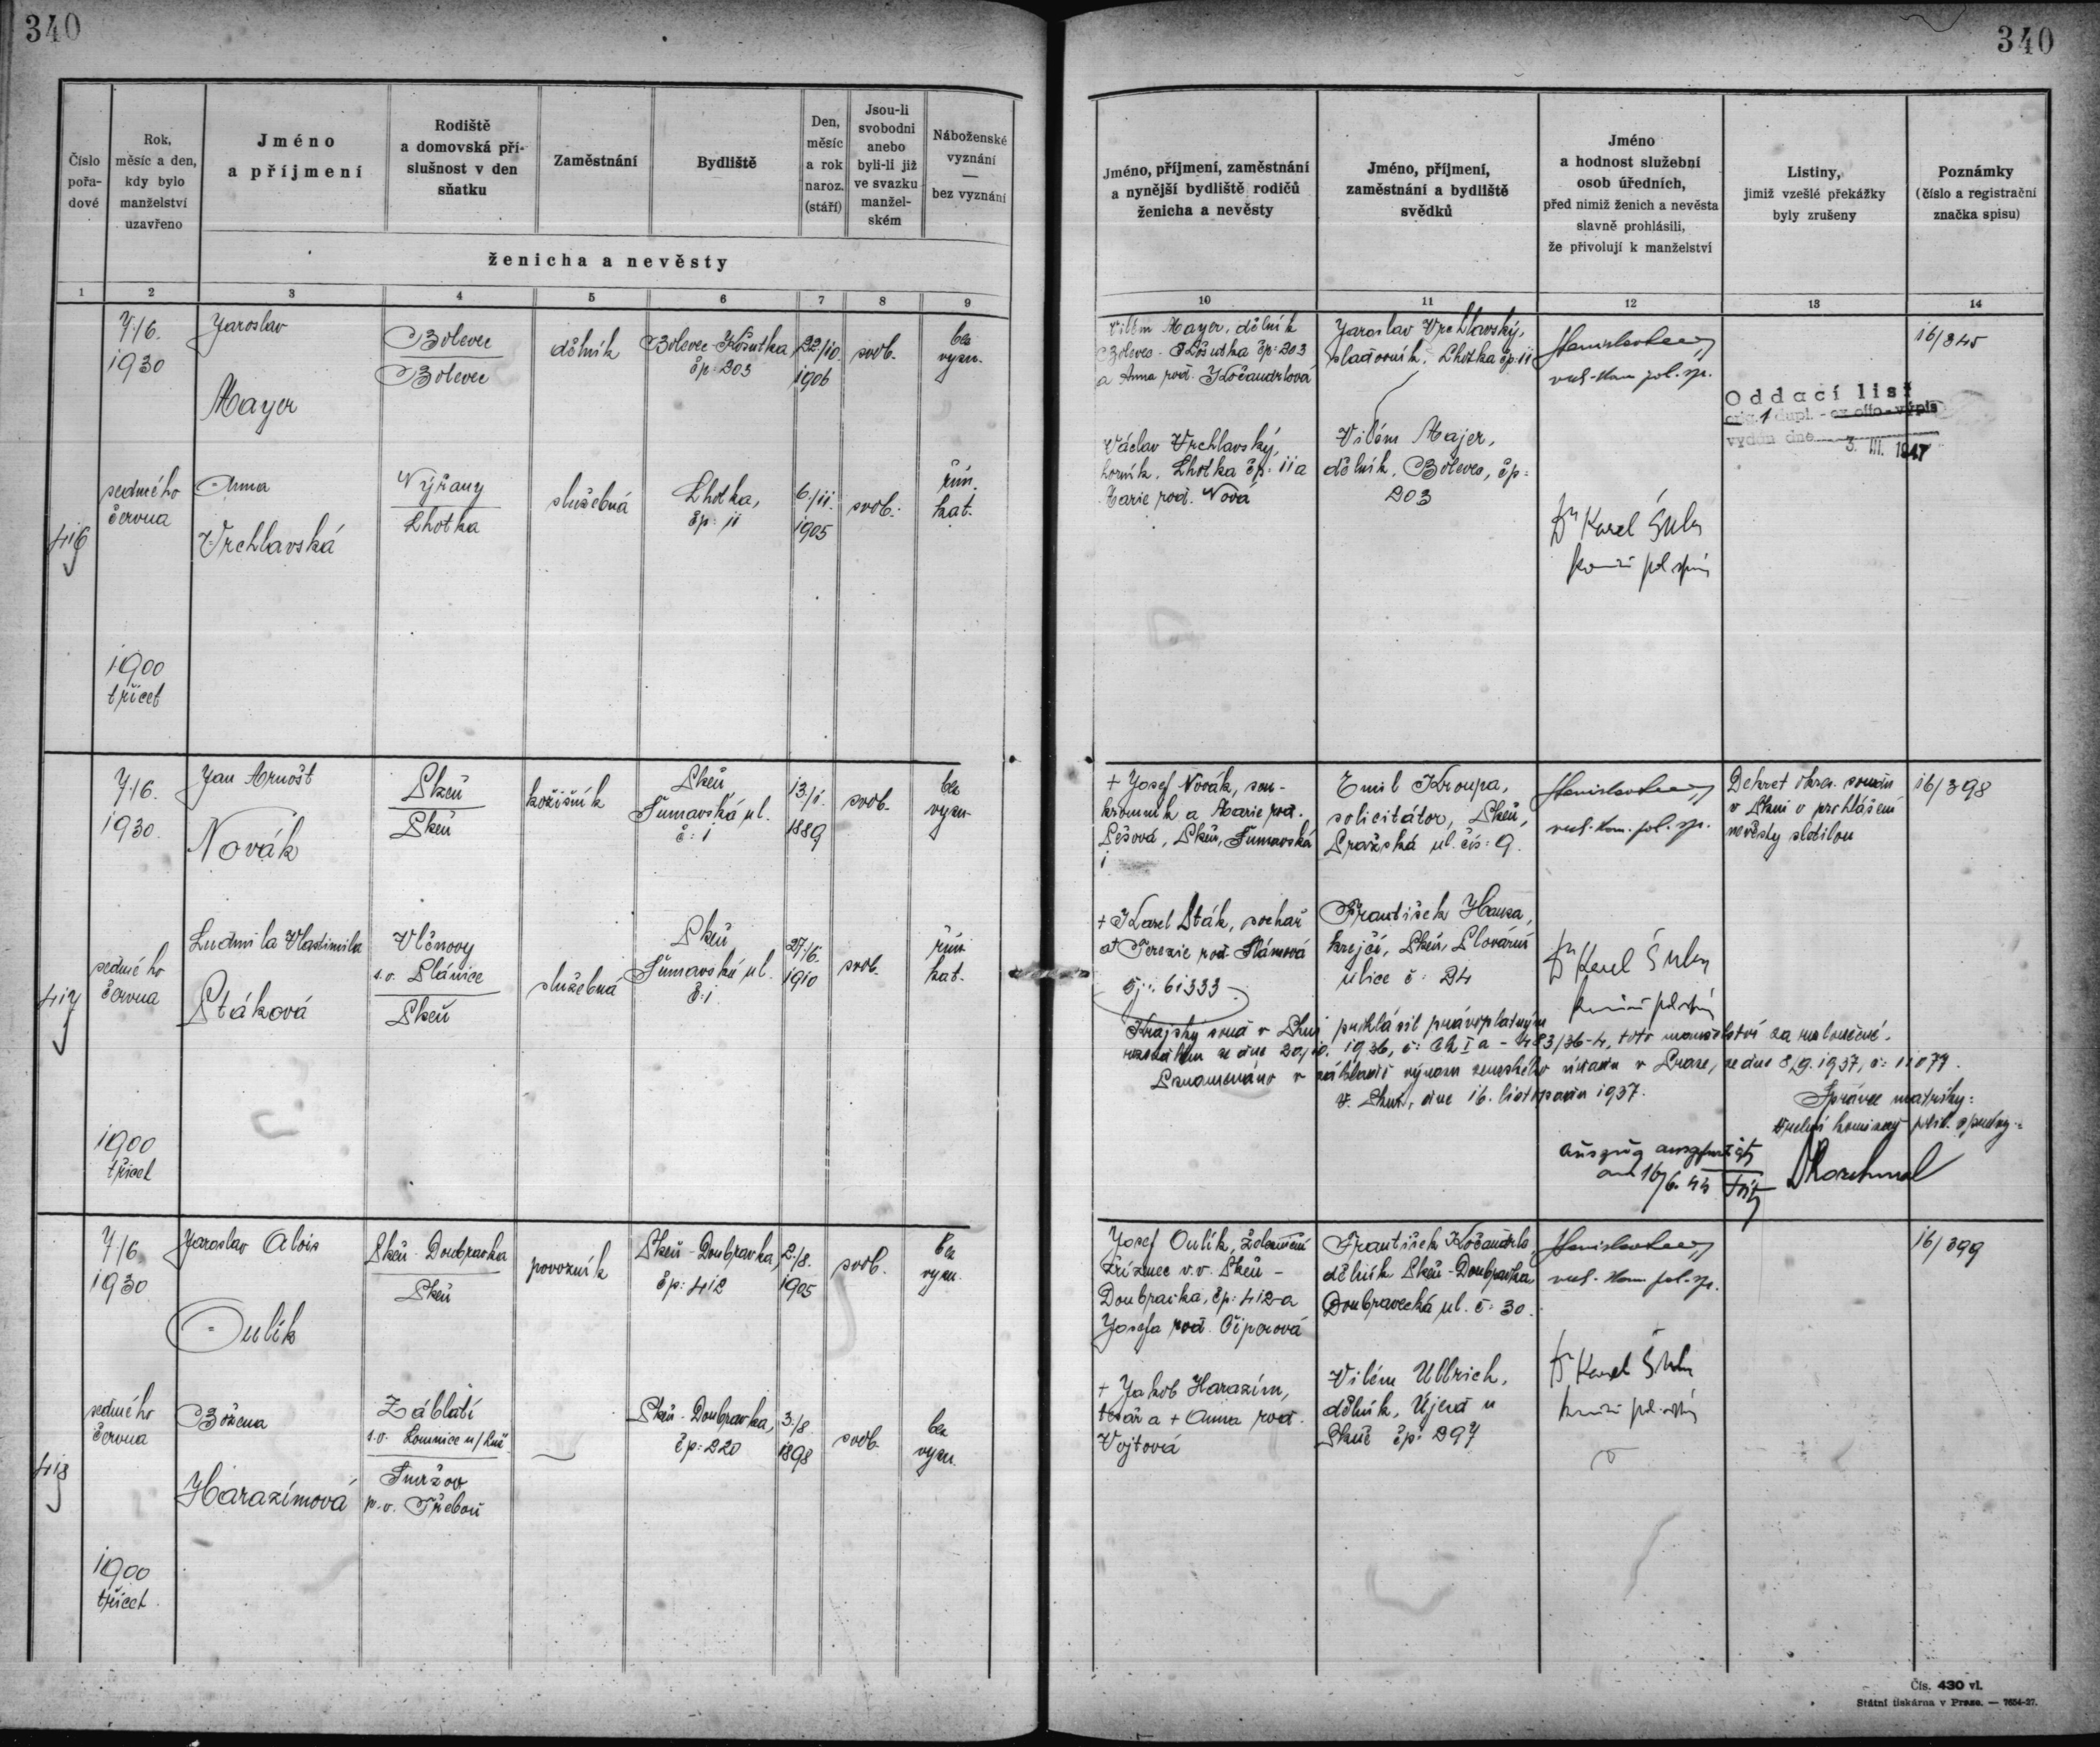 340
340
Číslo
pořa-
dové
Rok,
měsíc a den,
kdy bylo
manželství
uzavřeno
Jméno
a příjmení
Rodiště
a domovská pří-
slušnost v den
sňatku
Zaměstnání
Bydliště
Den,
měsíc
a rok
naroz.
(stáří)
Jsou-li
svobodni
anebo
byli-li již
ve svazku
manžel-
ském
Náboženské
vyznání
—
bez vyznání
ženicha a nevěsty
Jméno, příjmení, zaměstnání
a nynější bydliště rodičů
ženicha a nevěsty
Jméno, příjmení,
zaměstnání a bydliště
svědků
Jméno
a hodnost služební
osob úředních,
před nimiž ženich a nevěsta
slavně prohlásili,
že přivolují k manželství
Listiny,
jimiž vzešlé překážky
byly zrušeny
Poznámky
(číslo a registrační
značka spisu)
1 2 3 4 5 6 7 8 9 10 11 12 13 14
416
7/6.
1930
sedmého
června
1900
třicet
Jaroslav
Mayer
Bolevec
Bolevec
dělník
Bolevec-Košutka
čp: 203
22/10
1906
svob.
bez
vyzn.
Anna
Vrchlavská
Nýřany
Lhotka
služebná
Lhotka,
čp: 11
6/11.
1905
svob.
řím.
kat.
Vilém Mayer, dělník
Bolevec-Košutka čp: 203
a Anna roz. Kočandrlová
Václav Vrchlavský,
horník, Lhotka čp: 11 a
Marie roz. Nová
Jaroslav Vrchlavský,
sladovník, Lhotka čp: 11
Vilém Majer,
dělník, Bolevec, čp:
203
Dr Karel Šulc
Oddací list
vydán dne 3. III. 1947
16/345
417
7/6.
1930
sedmého
června
1900
třicet
Jan Arnošt
Novák
Plzeň
Plzeň
kožišník
Plzeň
Šumavská ul.
č: 1
13./1.
1889
svob.
bez
vyzn.
Ludmila Vlastimila
Ptáková
Vlčnovy
s.o. Plánice
Plzeň
služebná
Plzeň
Šumavská ul.
č: 1
27/6.
1910
svob.
řím.
kat.
+ Josef Novák, sou-
kromník a Marie roz.
Pešová, Plzeň, Šumavská
1
+ Karel Pták, sochař
a + Terezie roz. Slámová
čj: 61333
Emil Kroupa,
solicitátor, Plzeň,
Pražská ul. čís: 9.
František Hanza,
krejčí, Plzeň, Plovární
ulice č: 24
Dr Karel Šulc
Dekret okres. soudu
v Plzni o prohlášení
nevěsty zletilou
16/398
Krajský soud v Plzni prohlásil právoplatným
rozsudkem ze dne 20./10. 1936, č: Ck I a - 483/36-4, toto manželství za rozloučené.
Poznamenáno v základě výnosu zemského úřadu v Praze, ze dne 8/9. 1937, č: 11077.
V Plzni, dne 16. listopadu 1937.
Správce matriky:
418
7/6
1930
sedmého
června
1900
třicet
Jaroslav Alois
Oulík
Plzeň-Doubravka
Plzeň
povozník
Plzeň-Doubravka,
čp: 412
2./8.
1905
svob.
bez
vyzn.
Božena
Harazímová
Záblatí
s.o. Lomnice n/Luž.
p.o. Třeboň
Plzeň-Doubravka,
čp: 220
3./8
1898
svob.
bez
vyzn.
Josef Oulík,
zřízenec v.v. Plzeň-
Doubravka, čp: 412 a
Josefa roz. Čiperová
+ Jakob Harazím,
tesař a + Anna roz.
Vojtová
František Kočandrle,
dělník Plzeň-Doubravka
Doubravecká ul. č: 30.
Vilém Ullrich,
dělník, Újezd u
Plzně čp: 297
Dr Karel Šulc
16/399
Čís. 430 vl.
Státní tiskárna v Praze. — 7654-27.